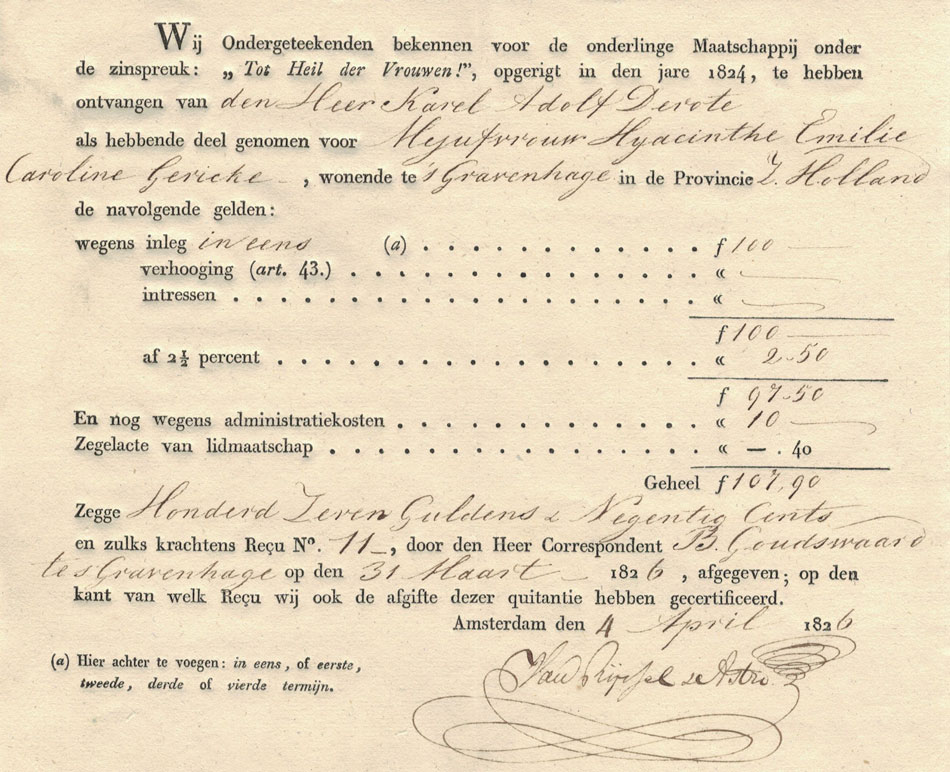 Wij Ondergeteekenden bekennen voor de onderlinge Maatschappij onder
de zinspreuk: „Tot Heil der Vrouwen!”, opgerigt in den jare 1824, te hebben
ontvangen van den Heer Karel Adolf Derote
als hebbende deel genomen voor Mejufvrouw Hyacinthe Emilie
Caroline Gericke —, wonende te 's Gravenhage in de Provincie Z. Holland
de navolgende gelden:
wegens inleg in eens (a) . . . . . . . . . . . . . f 100 —
verhooging (art. 43.) . . . . . . . . . . . . . . . « —
intressen . . . . . . . . . . . . . . . . . . . . . « —
f 100 —
af 2½ percent . . . . . . . . . . . . . . . . . . . « 2-50
f 97-50
En nog wegens administratiekosten . . . . . . . . . . . . . « 10 —
Zegelacte van lidmaatschap . . . . . . . . . . . . . . . . « — . 40
Geheel f 107,90
Zegge Honderd Zeven Guldens & Negentig Cents
en zulks krachtens Reçu No. 11 —, door den Heer Correspondent B. Goudswaard
te s Gravenhage op den 31 Maart — 1826, afgegeven; op den
kant van welk Reçu wij ook de afgifte dezer quitantie hebben gecertificeerd.
Amsterdam den 4 April 1826
(a) Hier achter te voegen: in eens, of eerste,
tweede, derde of vierde termijn.